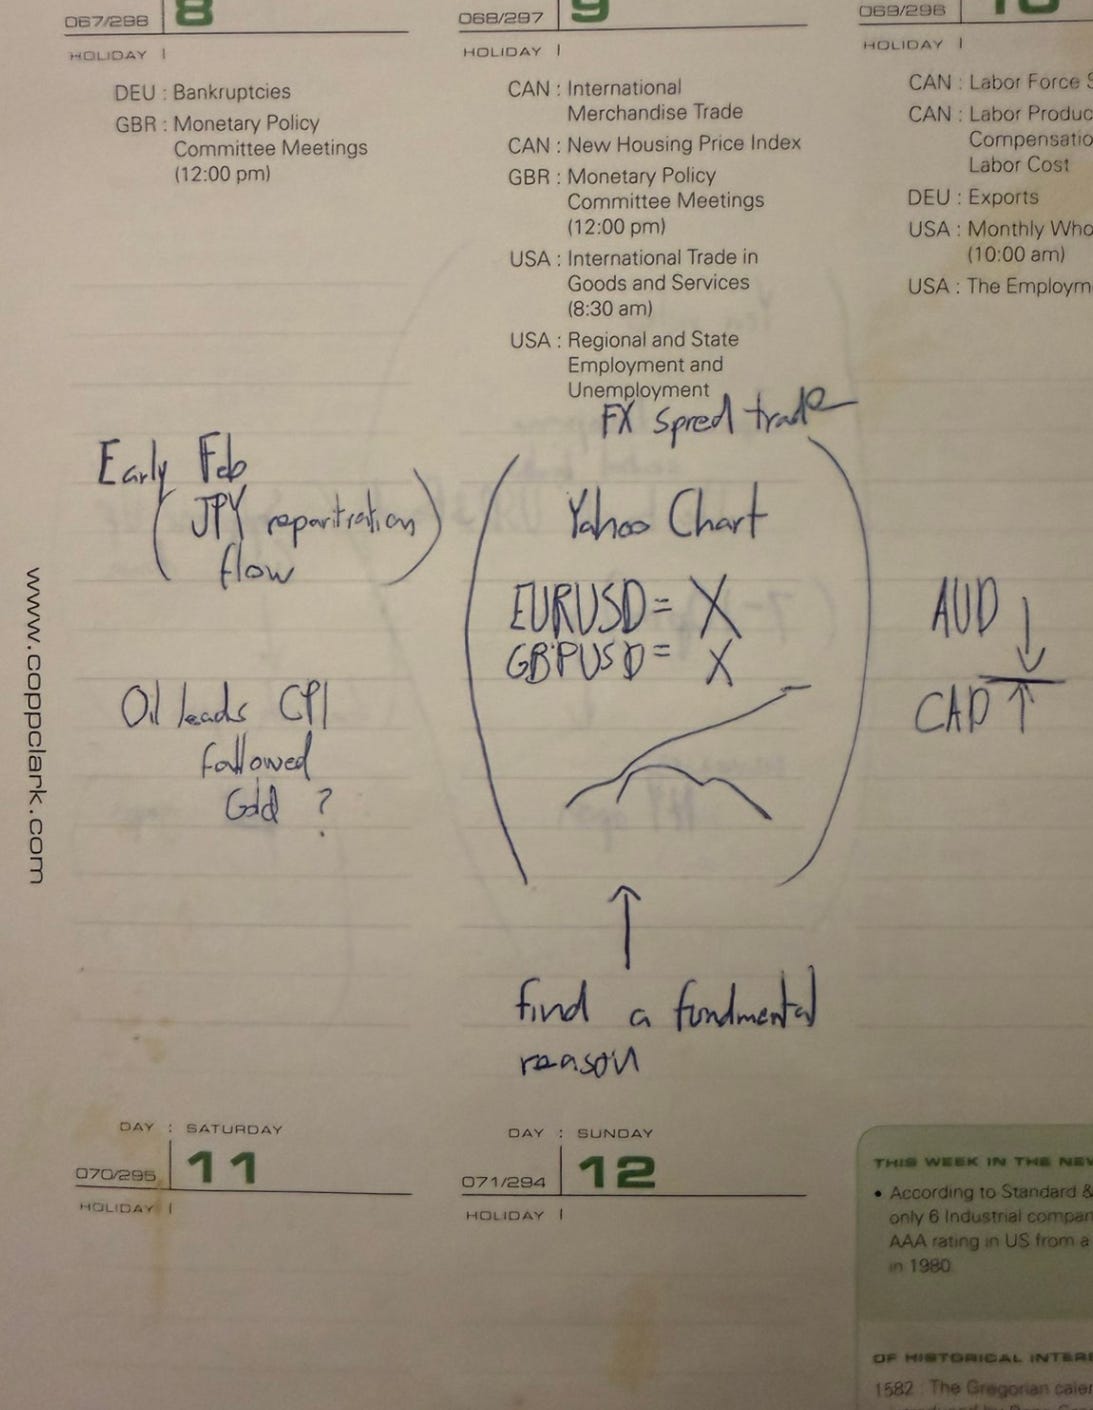 067/298 8
HOLIDAY |
DEU : Bankruptcies
GBR : Monetary Policy
Committee Meetings
(12:00 pm)
Early Feb
(JPY reparitration
flow)
Oil leads CPI
followed
Gold ?
068/297 9
HOLIDAY |
CAN : International
Merchandise Trade
CAN : New Housing Price Index
GBR : Monetary Policy
Committee Meetings
(12:00 pm)
USA : International Trade in
Goods and Services
(8:30 am)
USA : Regional and State
Employment and
Unemployment
FX spred trade
Yahoo Chart
EURUSD = X
GBPUSD = X
find a fundmental
reason
069/296 10
HOLIDAY |
CAN : Labor Force S
CAN : Labor Produc
Compensatio
Labor Cost
DEU : Exports
USA : Monthly Who
(10:00 am)
USA : The Employm
AUD ↓
CAD ↑
www.coppclark.com
DAY : SATURDAY
070/295 11
HOLIDAY |
DAY : SUNDAY
071/294 12
HOLIDAY |
THIS WEEK IN THE NEW
• According to Standard &
only 6 Industrial compan
AAA rating in US from a
in 1980
OF HISTORICAL INTERE
1582 : The Gregorian calen